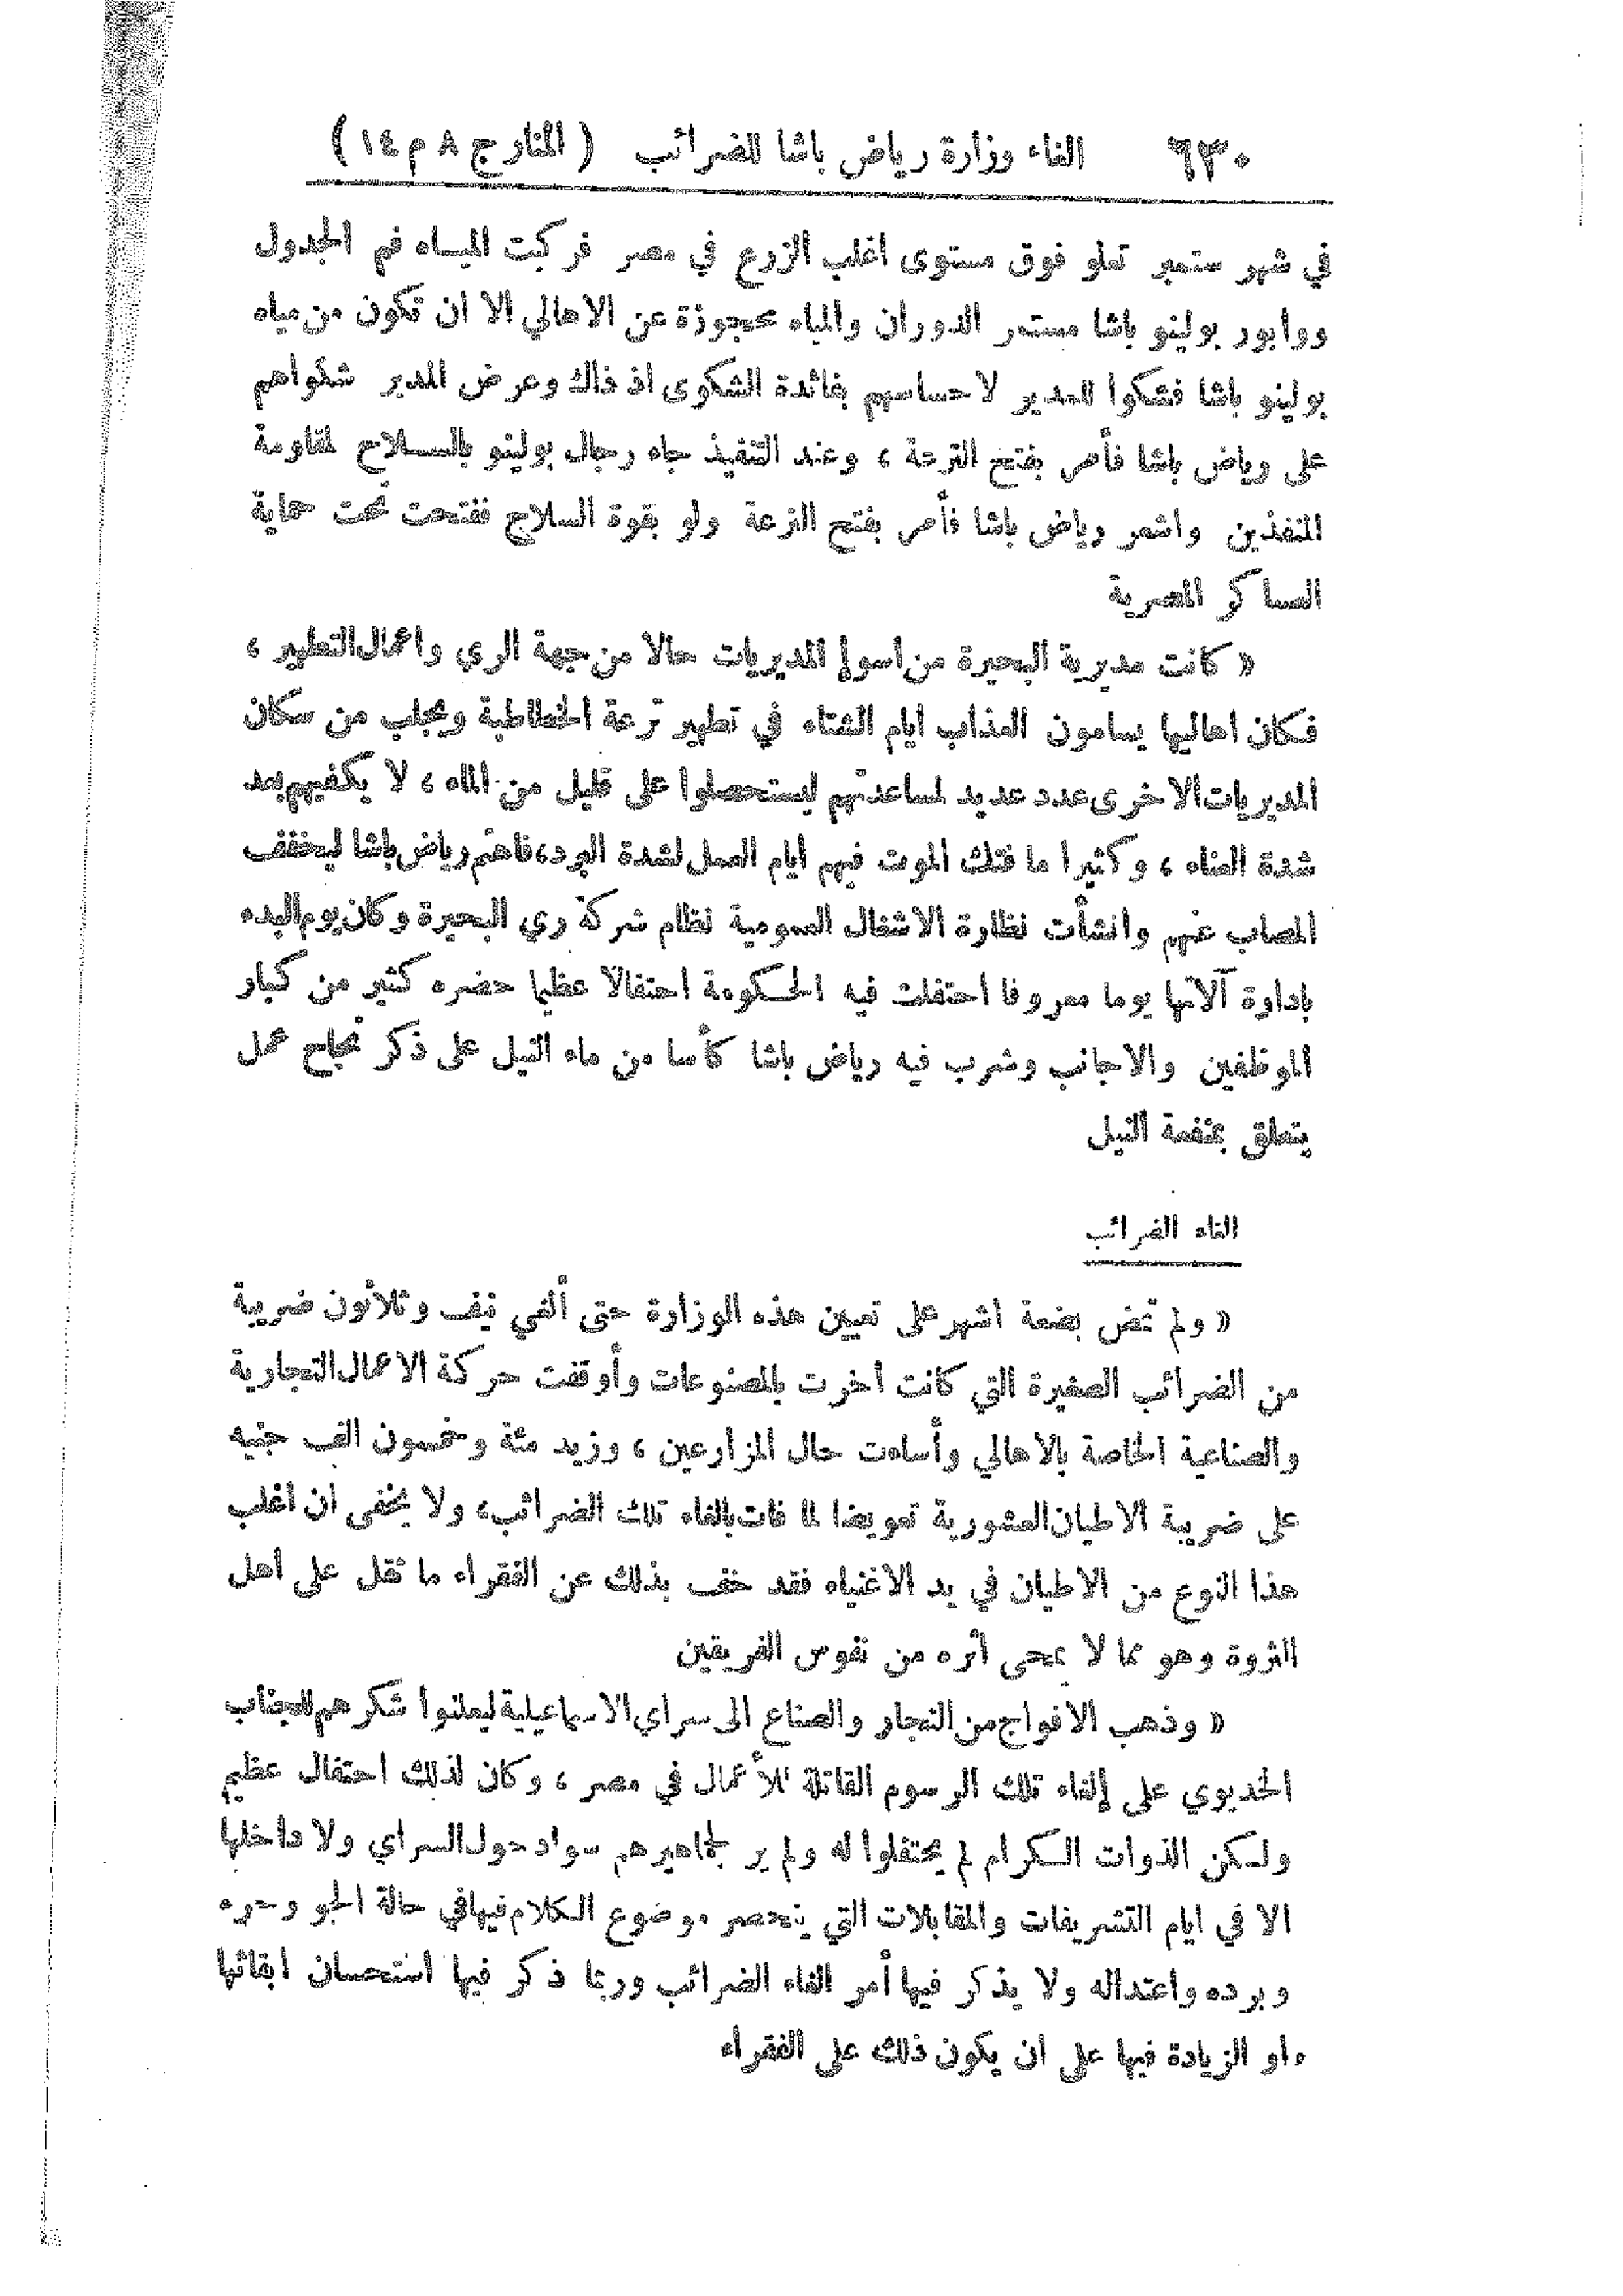 ٦٣٠ الغاء وزارة رياض باشا للضرائب (المنارج ٨ م ١٤)
في شهر ستمبر تعلو فوق مستوى اغلب الزرع في مصر فركبت المياه فم الجدول
ووابور بولينو باشا مستمر الدوران والمياه محجوزة عن الاهالي الا ان تكون من مياه
بولينو باشا فشكوا للمدير لاحساسهم بفائدة الشكوى اذ ذاك وعرض المدير شكواهم
على رياض باشا فأمر بفتح الترعة ، وعند التنفيذ جاء رجال بولينو بالسلاح لمقاومة
المنفذين واشعر رياض باشا فأمر بفتح الترعة ولو بقوة السلاح ففتحت تحت حماية
العساكر المصرية
« كانت مديرية البحيرة من اسوإ المديريات حالا من جهة الري واعمال التطهير ،
فكان اهاليها يسامون العذاب ايام الشتاء في تطهير ترعة الخطاطبة ويجلب من سكان
المديريات الاخرى عدد عديد لمساعدتهم ليستحصلوا على قليل من الماء ، لا يكفيهم بعد
شدة العناء ، وكثيرا ما فتك الموت فيهم ايام العمل لشدة البرد، فاهتم رياض باشا ليخفف
المصاب عنهم وانشأت نظارة الاشغال العمومية نظام شركة ري البحيرة وكان يوم البدء
بادارة آلاتها يوما معروفا احتفلت فيه الحكومة احتفالا عظيما حضره كثير من كبار
الموظفين والاجانب وشرب فيه رياض باشا كأسا من ماء النيل على ذكر نجاح عمل
يتعلق بمنفعة النيل
الغاء الضرائب
« ولم تمض بضعة اشهر على تعيين هذه الوزارة حتى ألغي نيف وثلاثون ضريبة
من الضرائب الصغيرة التي كانت أضرت بالمصنوعات وأوقفت حركة الاعمال التجارية
والصناعية الخاصة بالاهالي وأساءت حال المزارعين ، وزيد مئة وخمسون الف جنيه
على ضريبة الاطيان العشورية تعويضا لما فات بالغاء تلك الضرائب، ولا يخفى ان اغلب
هذا النوع من الاطيان في يد الاغنياء فقد خفف بذلك عن الفقراء ما ثقل على اهل
الثروة وهو مما لا يمحى أثره من نفوس الفريقين
« وذهب الافواج من التجار والصناع الى سراي الاسماعيلية ليعلنوا شكرهم للجناب
الخديوي على إلغاء تلك الرسوم القاتلة للأعمال في مصر ، وكان لذلك احتفال عظيم
ولكن الذوات الكرام لم يحتفلوا له ولم ير لجماهيرهم سواد حول السراي ولا داخلها
الا في ايام التشريفات والمقابلات التي ينحصر موضوع الكلام فيها في حالة الجو وحره
وبرده واعتداله ولا يذكر فيها أمر الغاء الضرائب وربما ذكر فيها استحسان ابقائها
او الزيادة فيها على ان يكون ذلك على الفقراء